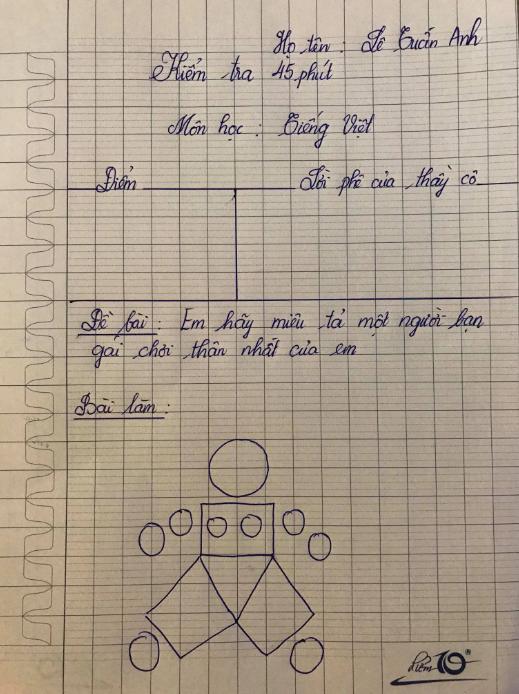 Họ tên : Lê Tuấn Anh
Kiểm tra 45 phút
Môn học : Tiếng Việt
Điểm
Lời phê của thầy cô
Đề bài : Em hãy miêu tả một người bạn
gái chơi thân nhất của em
Bài làm :
Điểm 10